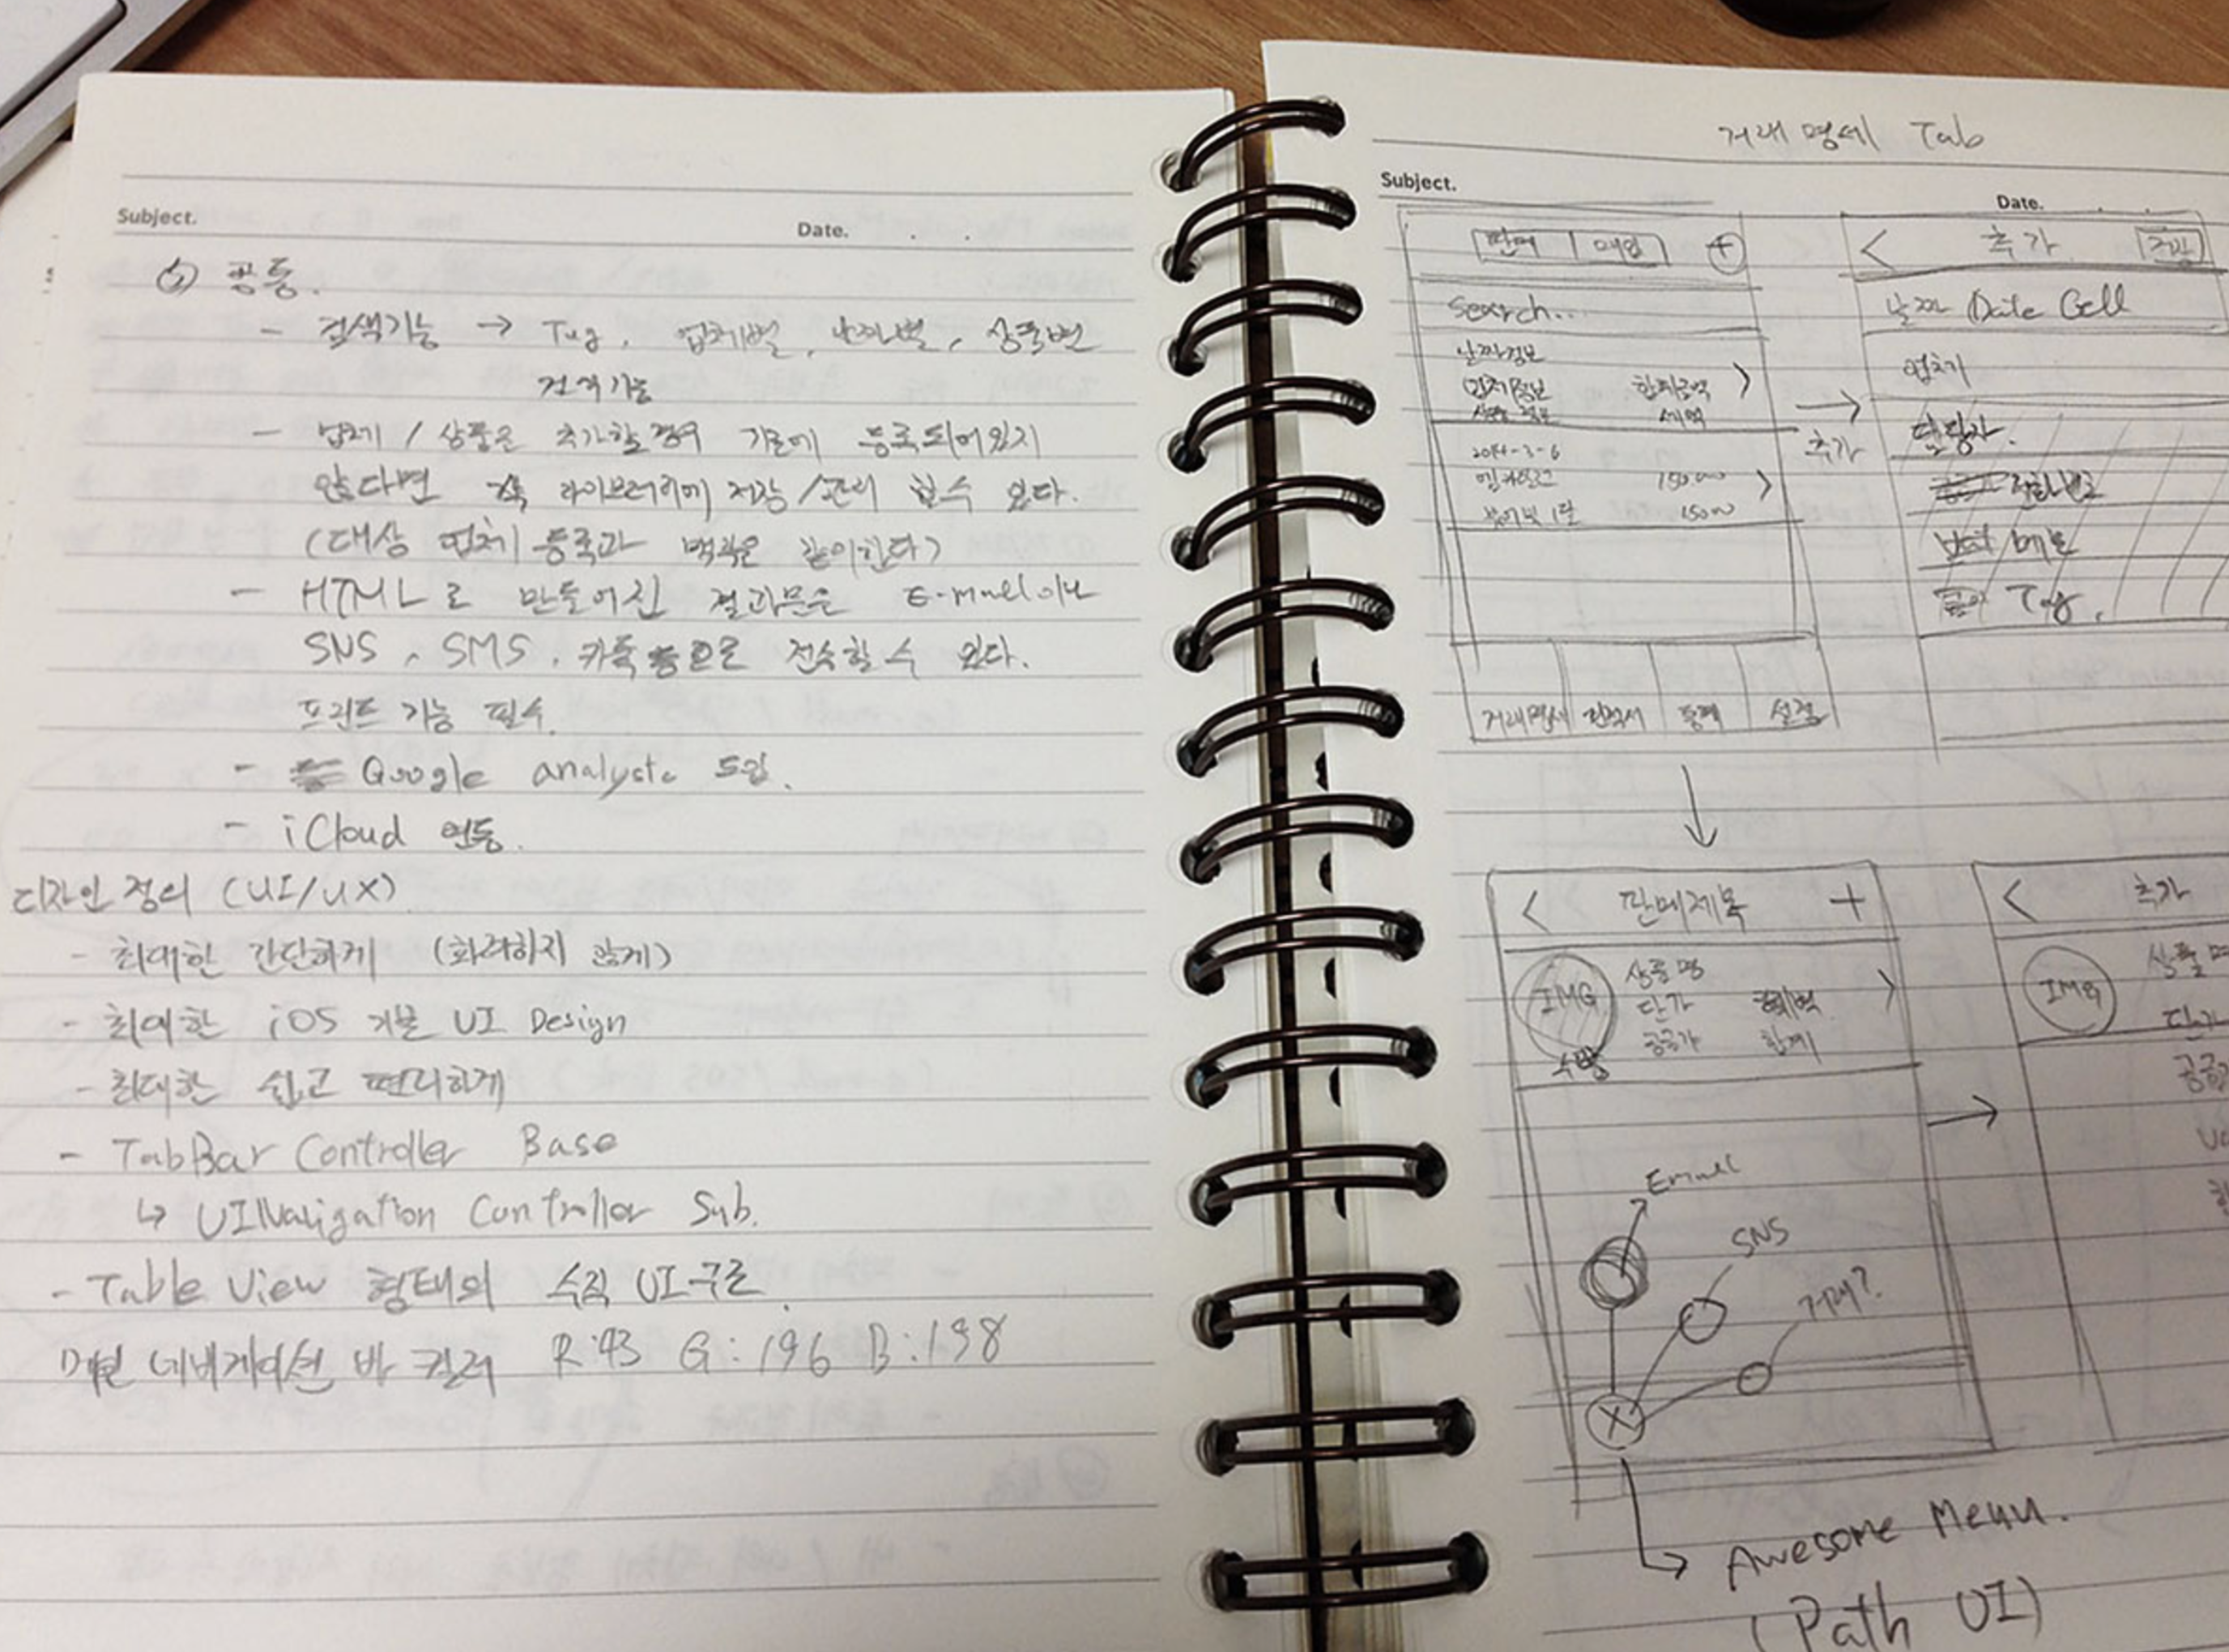 Subject.
Date. . .
공통.
- 검색기능 → Tag, 업체별, 날짜별, 상품별
검색기능
- 업체 / 상품은 추가할 경우 기존에 등록되어있지
않다면 각 라이브러리에 저장/관리 할 수 있다.
(대상 업체 등록과 맥락은 같이한다)
- HTML로 만들어진 결과문은 E-mail이나
SNS, SMS, 카톡 등으로 전송할 수 있다.
프린트 기능 필수.
- Google analystc 도입.
- iCloud 연동.
디자인 정의 (UI/UX)
- 최대한 간단하게 (화려하지 않게)
- 최대한 iOS 기본 UI Design
- 최대한 쉽고 편리하게
- TabBar Controller Base
↳ UINavigation Controller Sub.
- Table View 형태의 수직 UI구조.
메인 네비게이션 바 컬러 R:43 G:196 B:198
거래명세 Tab
Subject.
Date. . .
판매 매입 +
Search...
날짜정보
업체정보 합계금액 >
상품 정보 세액
2014-3-6
>
거래명세 견적서 통계 설정
→
추가
< 추가 저장
날짜 Date Cell
업체
담당자.
전화번호
메모
Tag.
↓
< 판매제목 +
IMG 상품명 >
단가
공급가 합계
수량
→
< 추가
IMG 상품명
단가
Email
SNS
거래?
X
↳ Awesome Menu.
(Path UI)